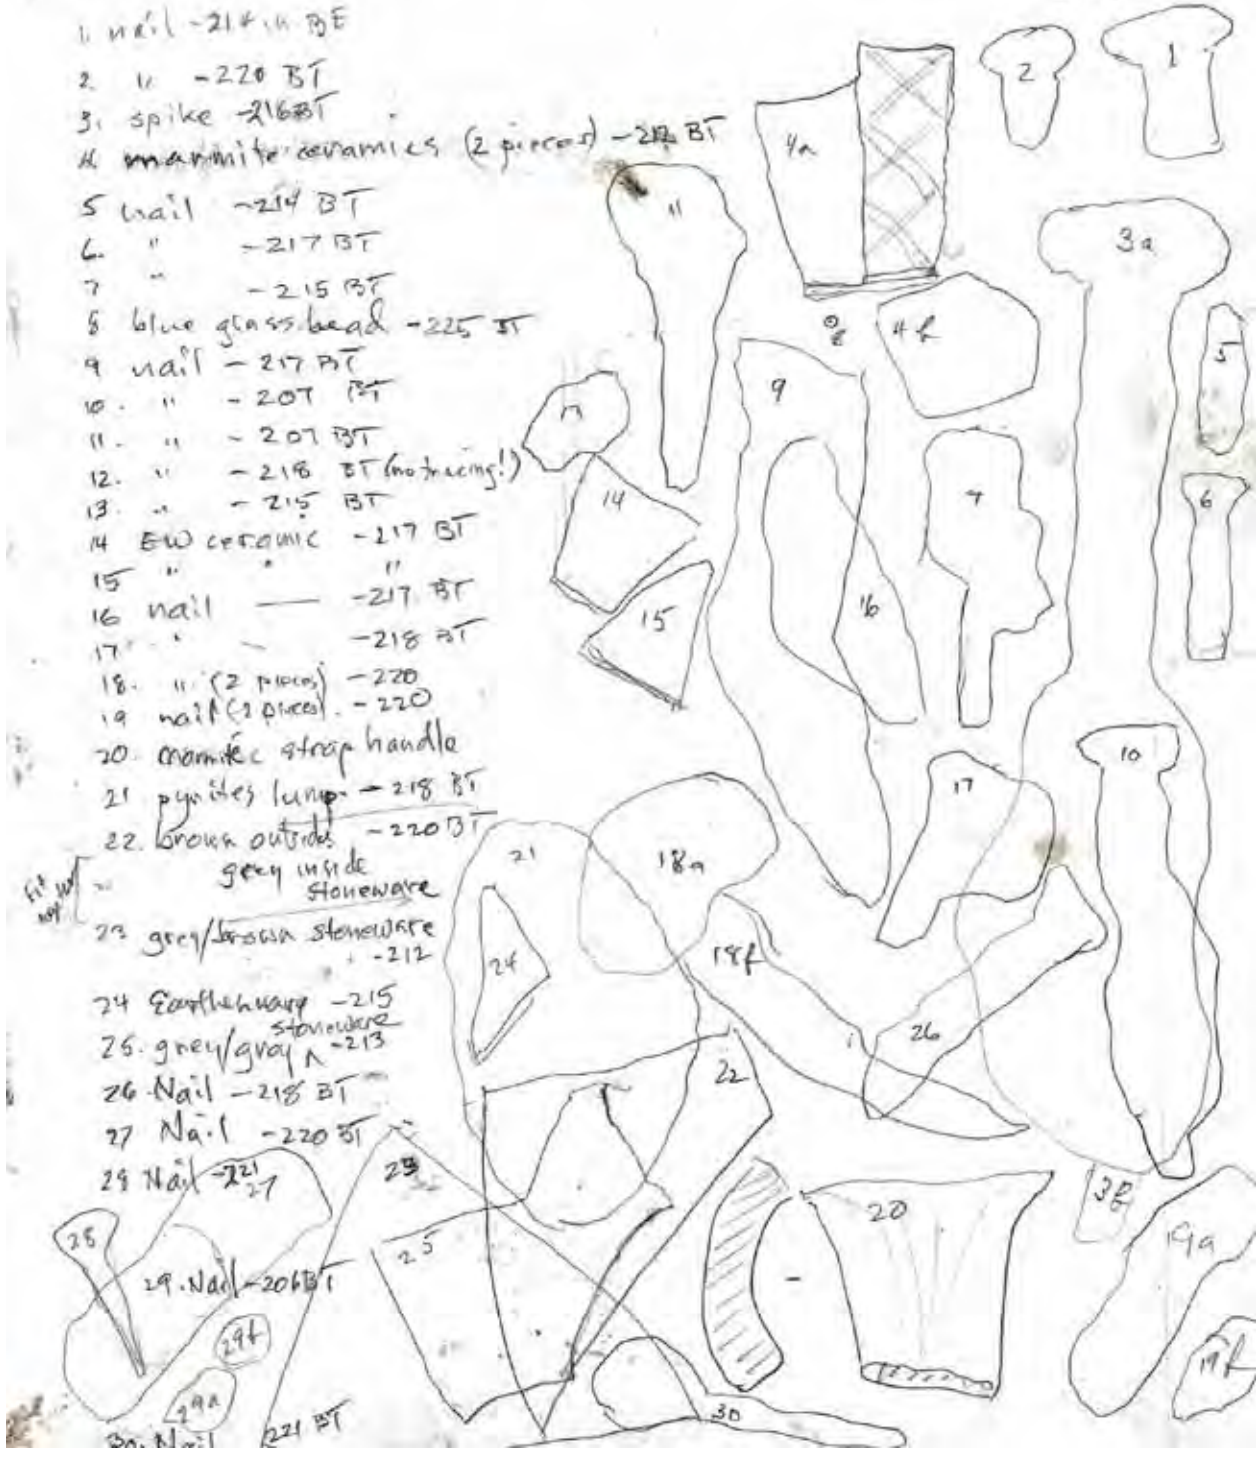 1. nail -214 in BE
2. " -220 BT
3. spike -216 BT
4. marmite ceramics (2 pieces) - BT
5 nail -214 BT
6. " -217 BT
7 " -215 BT
8 blue glass bead -225 BT
9 nail -217 BT
10. " -207 BT
11. " -207 BT
12. " -218 BT (no tracing!)
13. " -215 BT
14 EW ceramic -217 BT
15 " " "
16 nail — -217 BT
17 " -218 BT
18. " (2 pieces) -220
19 nail (2 pieces). -220
20. marmite strap handle
21 pyrites lump. -218 BT
22. brown outside -220 BT
grey inside
stoneware
Fit together
23 grey/brown stoneware
-212
24 Earthenware -215
25. grey/gray stoneware -213
26 Nail -218 BT
27 Nail -220 BT
28 Nail -221
27
29. Nail -206 BT
30. Nail 221 BT
1
2
4a
11
3a
8
5
9
13
14
7
6
15
16
10
17
21
18a
24
26
22
23
25
20
28
19a
30